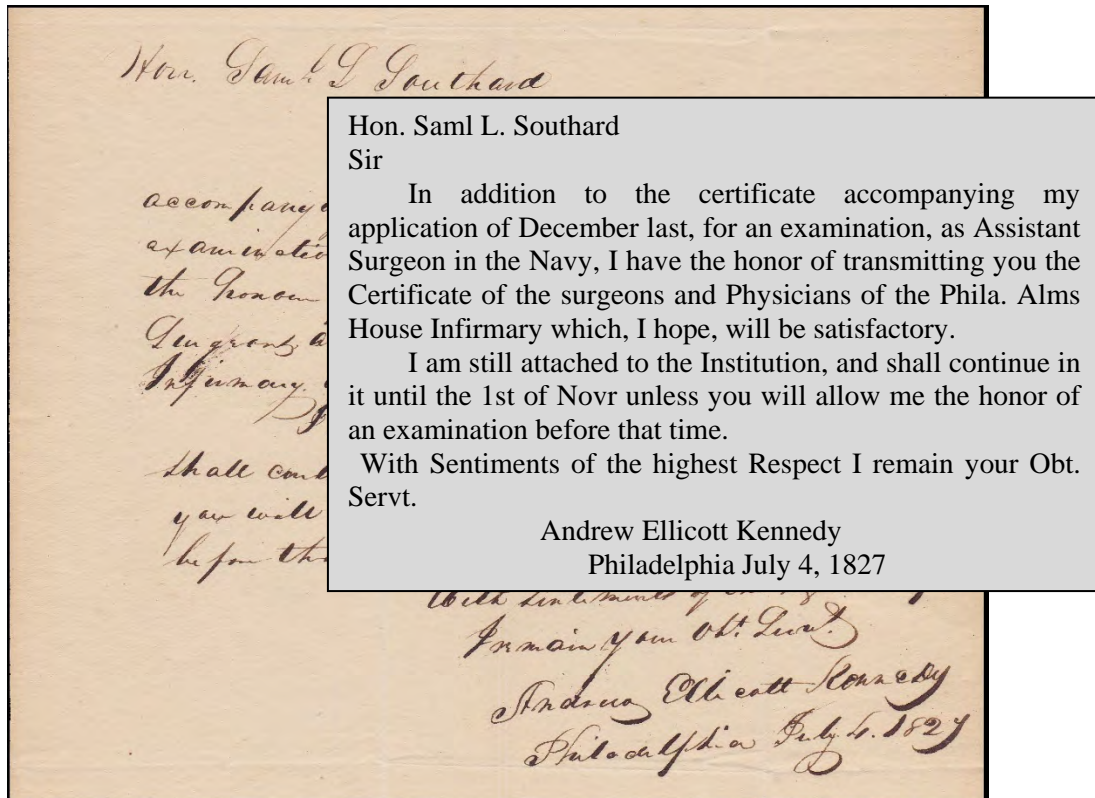 Hon. Saml L Southard
accompany
examinatio
the honour
Surgeons a
Infirmary
shall cont
you will
before
With sentiments of
I remain your Obt. Servt.
Andrew Ellicott Kennedy
Philadelphia July 4. 1827
Hon. Saml L. Southard
Sir
In addition to the certificate accompanying my
application of December last, for an examination, as Assistant
Surgeon in the Navy, I have the honor of transmitting you the
Certificate of the surgeons and Physicians of the Phila. Alms
House Infirmary which, I hope, will be satisfactory.
I am still attached to the Institution, and shall continue in
it until the 1st of Novr unless you will allow me the honor of
an examination before that time.
With Sentiments of the highest Respect I remain your Obt.
Servt.
Andrew Ellicott Kennedy
Philadelphia July 4, 1827